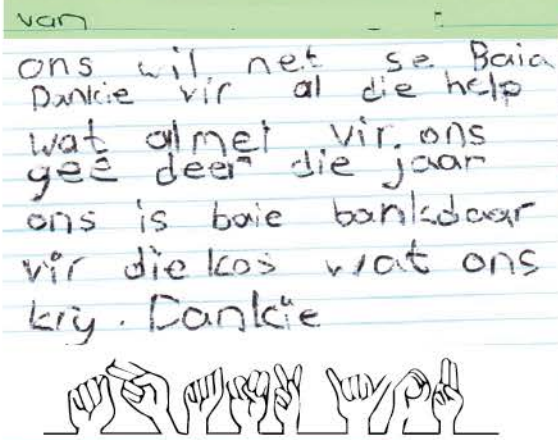 van
ons wil net se Baia
Dankie vir al die help
wat almel vir. ons
gee deer die jaar
ons is baie bankdaar
vir die kos wat ons
kry. Dankie